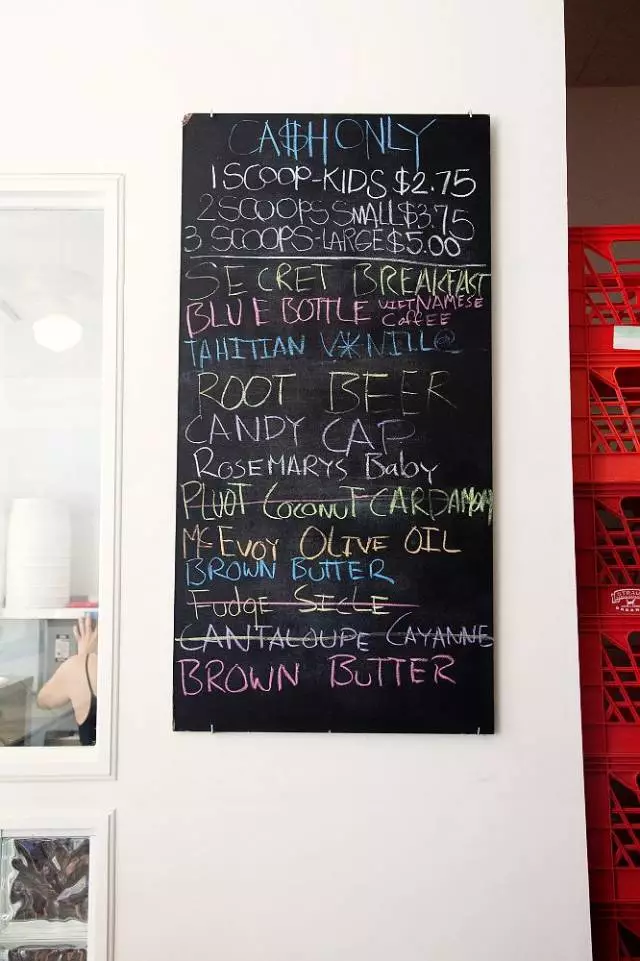 CA$H ONLY
1 SCOOP-KIDS $2.75
2 SCOOPS SMALL $3.75
3 SCOOPS-LARGE $5.00
SECRET BREAKFAST
BLUE BOTTLE VIETNAMESE
COFFEE
TAHITIAN V*NILL@
ROOT BEER
CANDY CAP
ROSEMARYS Baby
PLUOT COCONUT CARDAMOM
McEVOY OLIVE OIL
BROWN BUTTER
Fudge SICLE
CANTALOUPE CAYANNE
BROWN BUTTER